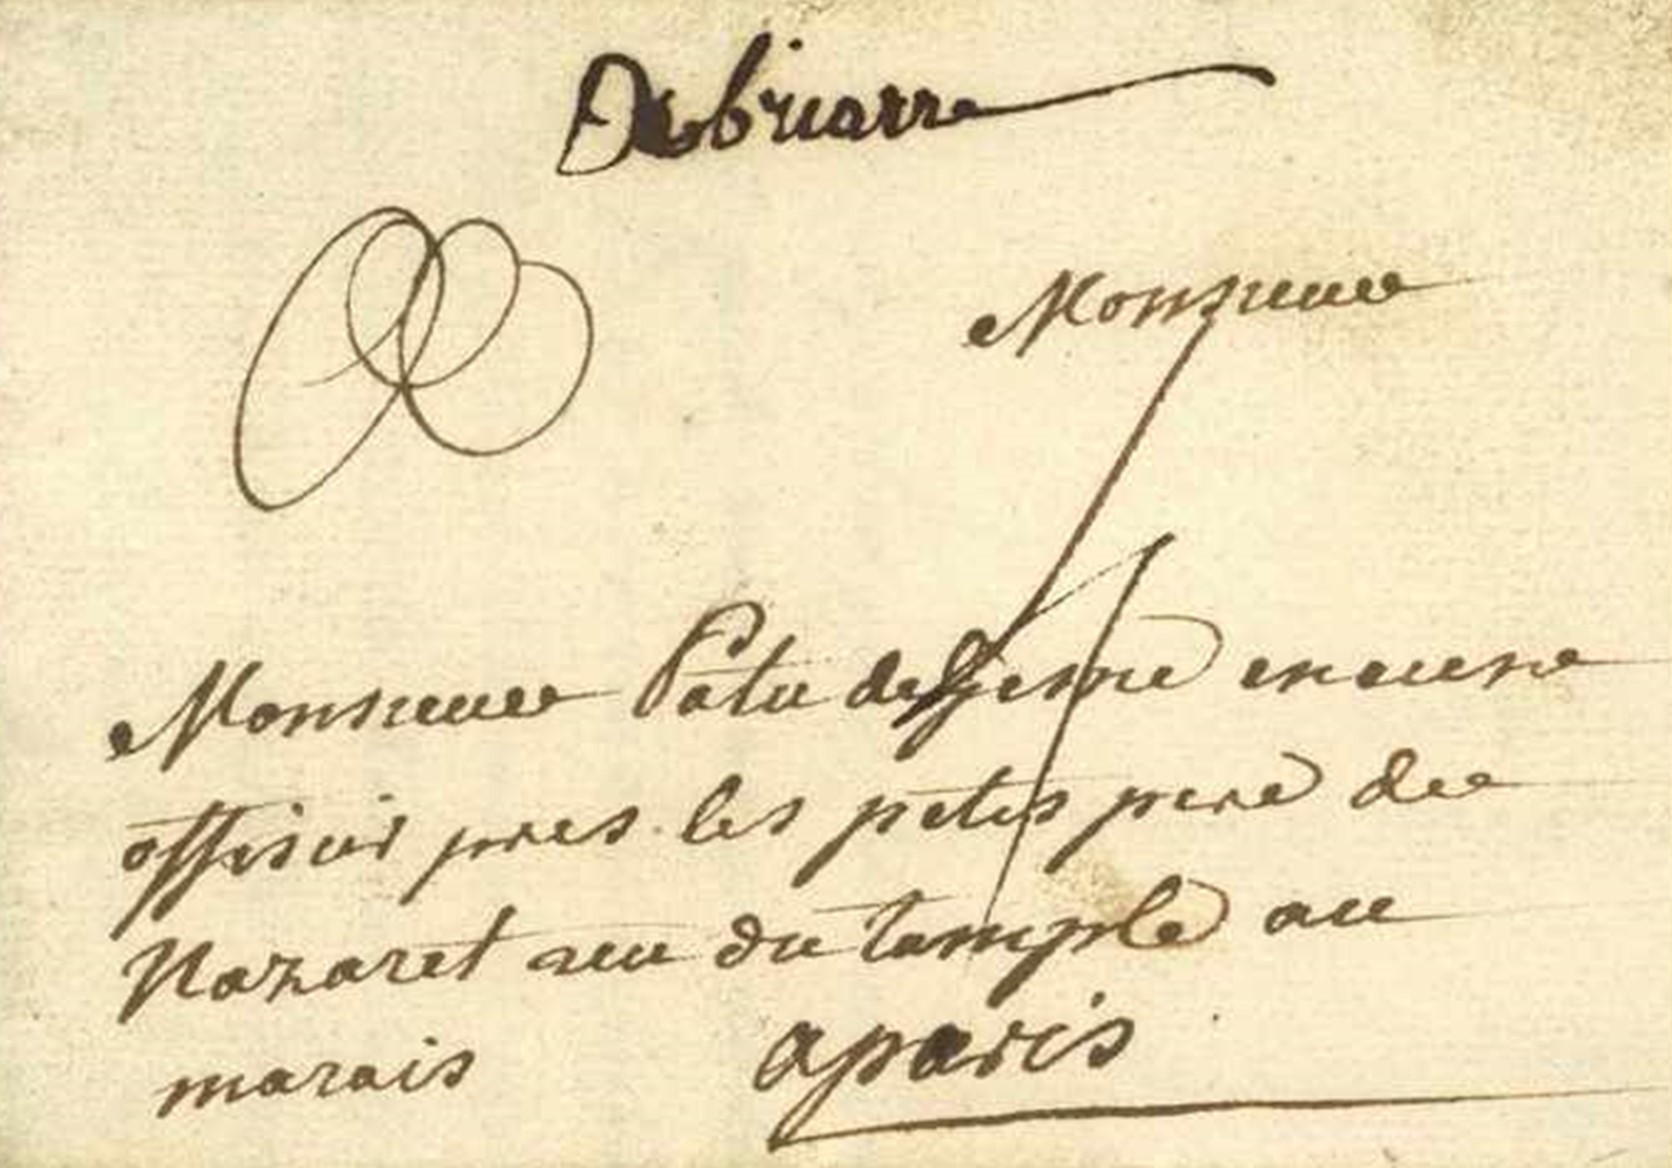 Debriarre
Monsieur
Monsieur Patu de
offisier pres les petis pere de
Nazaret rue du temple au
marais aparis